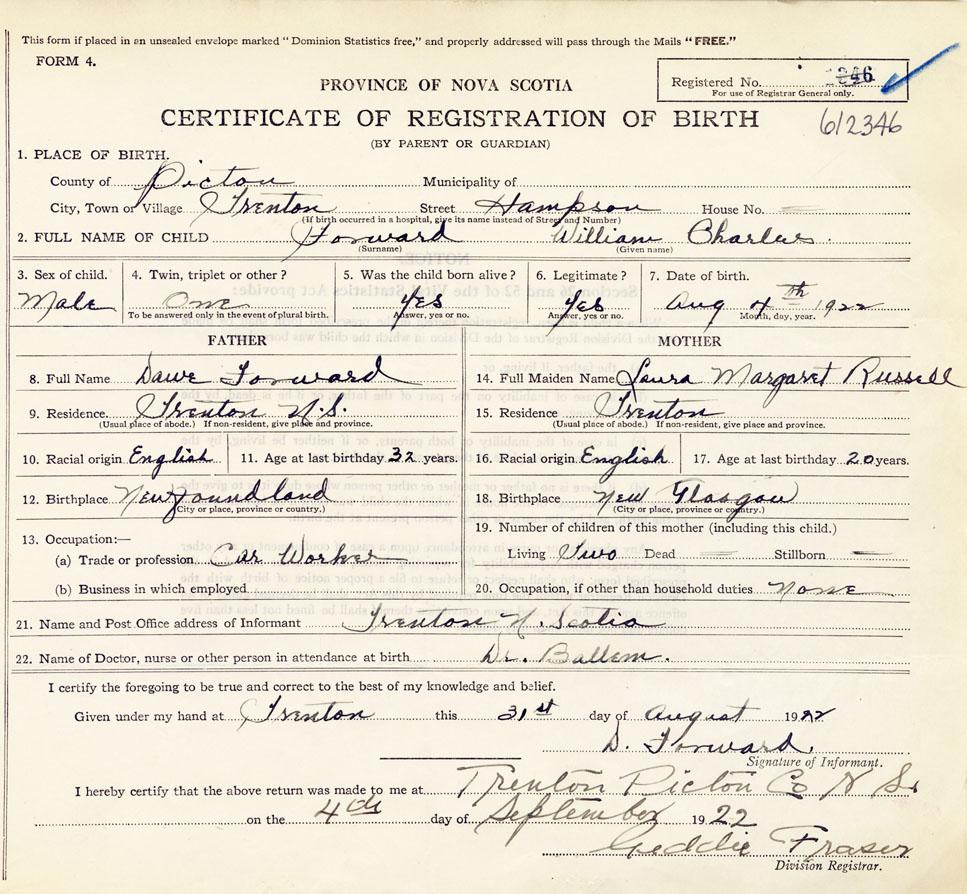 This form if placed in an unsealed envelope marked "Dominion Statistics free," and properly addressed will pass through the Mails "FREE."
FORM 4.
Registered No. 346
For use of Registrar General only.
PROVINCE OF NOVA SCOTIA
CERTIFICATE OF REGISTRATION OF BIRTH
612346
(BY PARENT OR GUARDIAN)
1. PLACE OF BIRTH.
County of Picton Municipality of
City, Town or Village Trenton Street Hampson House No.
(If birth occurred in a hospital, give its name instead of Street and Number)
2. FULL NAME OF CHILD Forward William Charles.
(Surname) (Given name)
3. Sex of child. 4. Twin, triplet or other? 5. Was the child born alive? 6. Legitimate? 7. Date of birth.
Male One Yes Yes Aug 4th 1922
To be answered only in the event of plural birth. Answer, yes or no. Answer, yes or no. Month, day, year.
FATHER MOTHER
8. Full Name Dawe Forward 14. Full Maiden Name Laura Margaret Russell
9. Residence. Trenton N.S. 15. Residence Trenton
(Usual place of abode.) If non-resident, give place and province. (Usual place of abode.) If non-resident, give place and province.
10. Racial origin English 11. Age at last birthday 32 years. 16. Racial origin English 17. Age at last birthday 20 years.
12. Birthplace Newfoundland 18. Birthplace New Glasgow
(City or place, province or country.) (City or place, province or country.)
13. Occupation:— 19. Number of children of this mother (including this child.)
(a) Trade or profession Car Worker Living Two Dead Stillborn
(b) Business in which employed 20. Occupation, if other than household duties none
21. Name and Post Office address of Informant Trenton N. Scotia
22. Name of Doctor, nurse or other person in attendance at birth Dr. Ballem.
I certify the foregoing to be true and correct to the best of my knowledge and belief.
Given under my hand at Trenton this 31st day of august 1922
D. Forward.
Signature of Informant.
I hereby certify that the above return was made to me at Trenton Picton Co N S.
on the 4th day of September 1922
Geddie Fraser
Division Registrar.